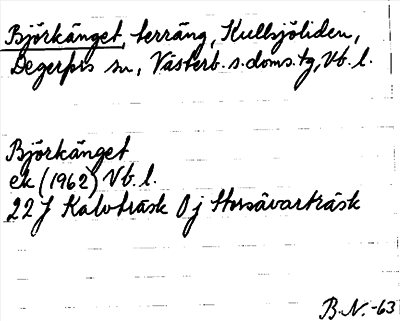 Björkänget, terräng, Kullsjöliden,
Degerfors sn, Västerb. s. doms. tg, Vb. l.
Björkänget
ek (1962) Vb. l.
22 J Kalvträsk 0j Storsävarträsk
B.N. -63